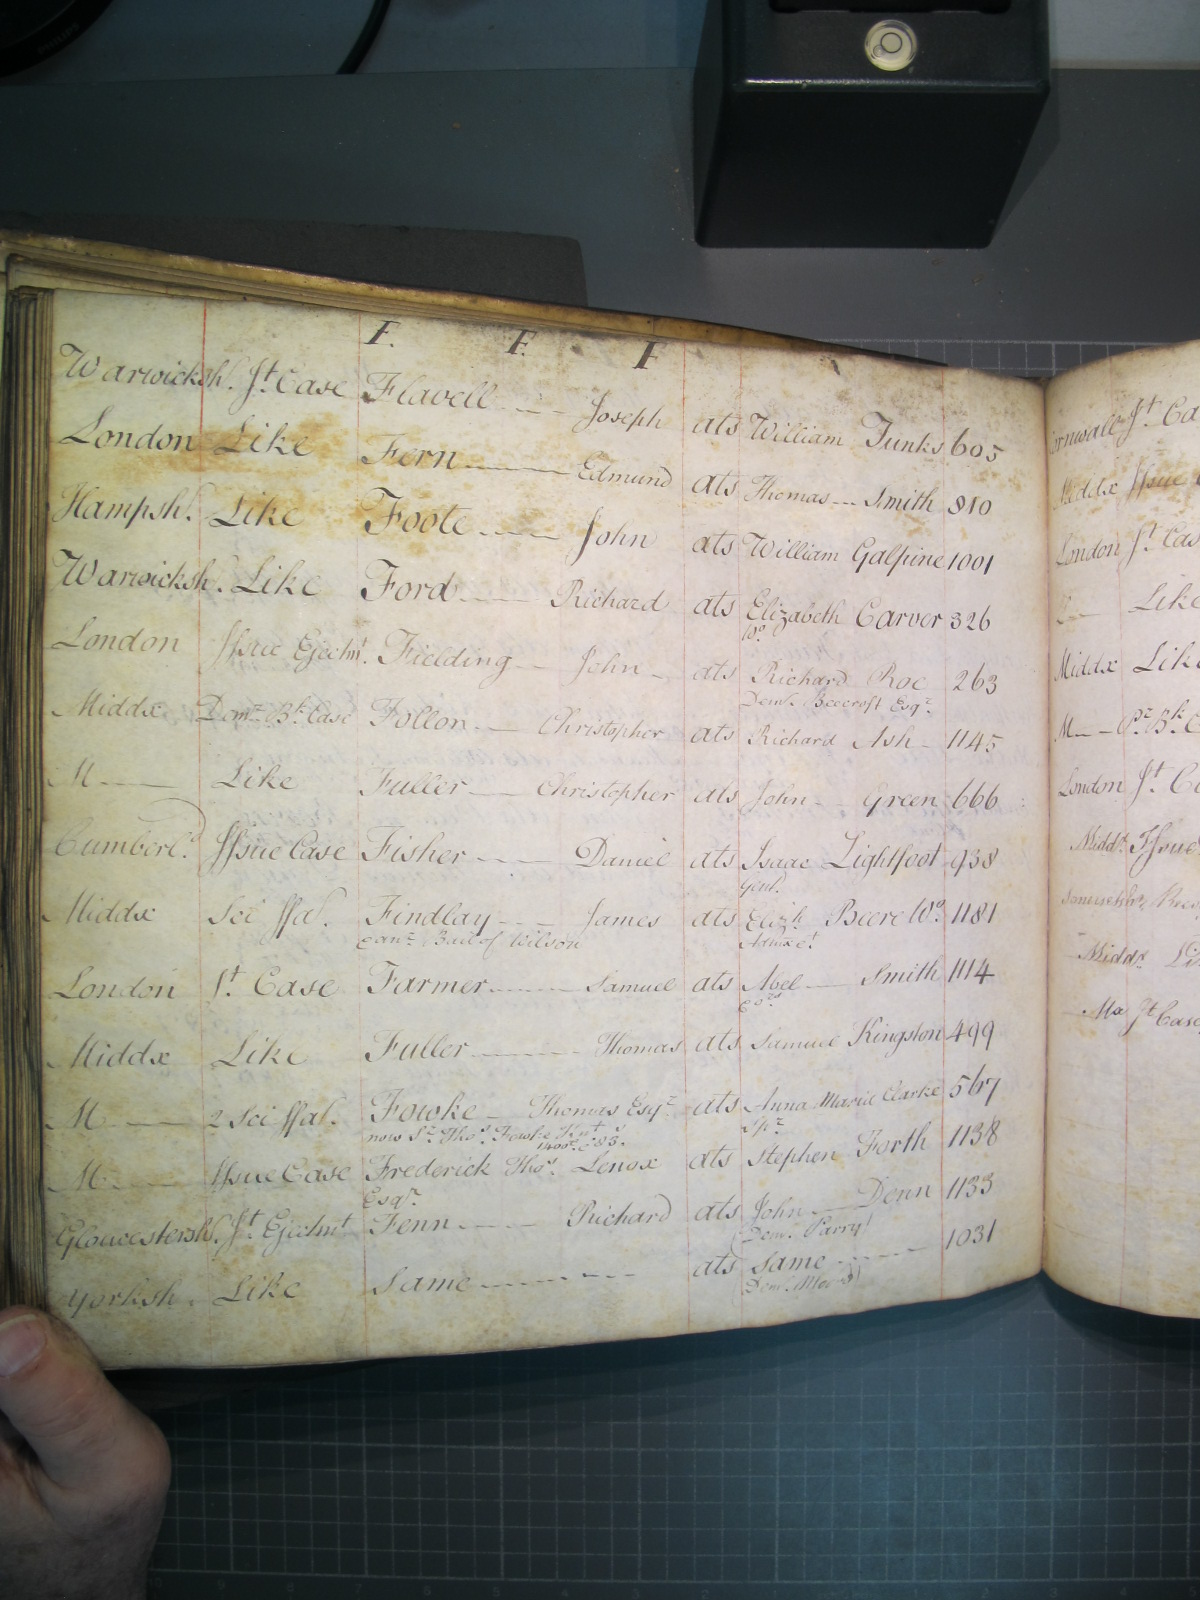 F. F. F
Warwicksh. Jt. Case Flavell Joseph ats William Tunks 605
London Like Fern Edmund ats Thomas Smith 810
Hampsh. Like Foote John ats William Galpine 1001
Warwicksh. Like Ford Richard ats Elizabeth Carver 326
Wo.
London Issue Ejectmt. Fielding John ats Richard Roe 263
Dem. Beecroft Esqr.
Middx Demr. Bk. Case Follon Christopher ats Richard Ash 1145
M Like Fuller Christopher ats John Green 666
Cumberld. Issue Case Fisher Daniel ats Isaac Lightfoot 938
Gent.
Middx Sci ffas. Findlay James ats Elizh. Beere Wo. 1181
Bail of Wilson
London Jt. Case Farmer Samuel ats Abel Smith 1114
Middx Like Fuller Thomas ats Samuel Kingston 499
M 2 Sci ffas. Fowke Thomas Esqr. ats Anna Maria Clarke 567
now Sr. Thos. Fowke Knt.
M Issue Case Frederick Thos. Lenox ats Stephen Forth 1138
Esqr.
Gloucestersh. Jt. Ejectmt Fenn Richard ats John Denn 1133
Dem. Parry
Yorksh. Like Same ats Same 1031
Cornwall Jt Ca
Middx Issue
London Jt. Cas
Like
Middx Like
M
London Jt
Middx. Issue
Middx
Mx Jt Case